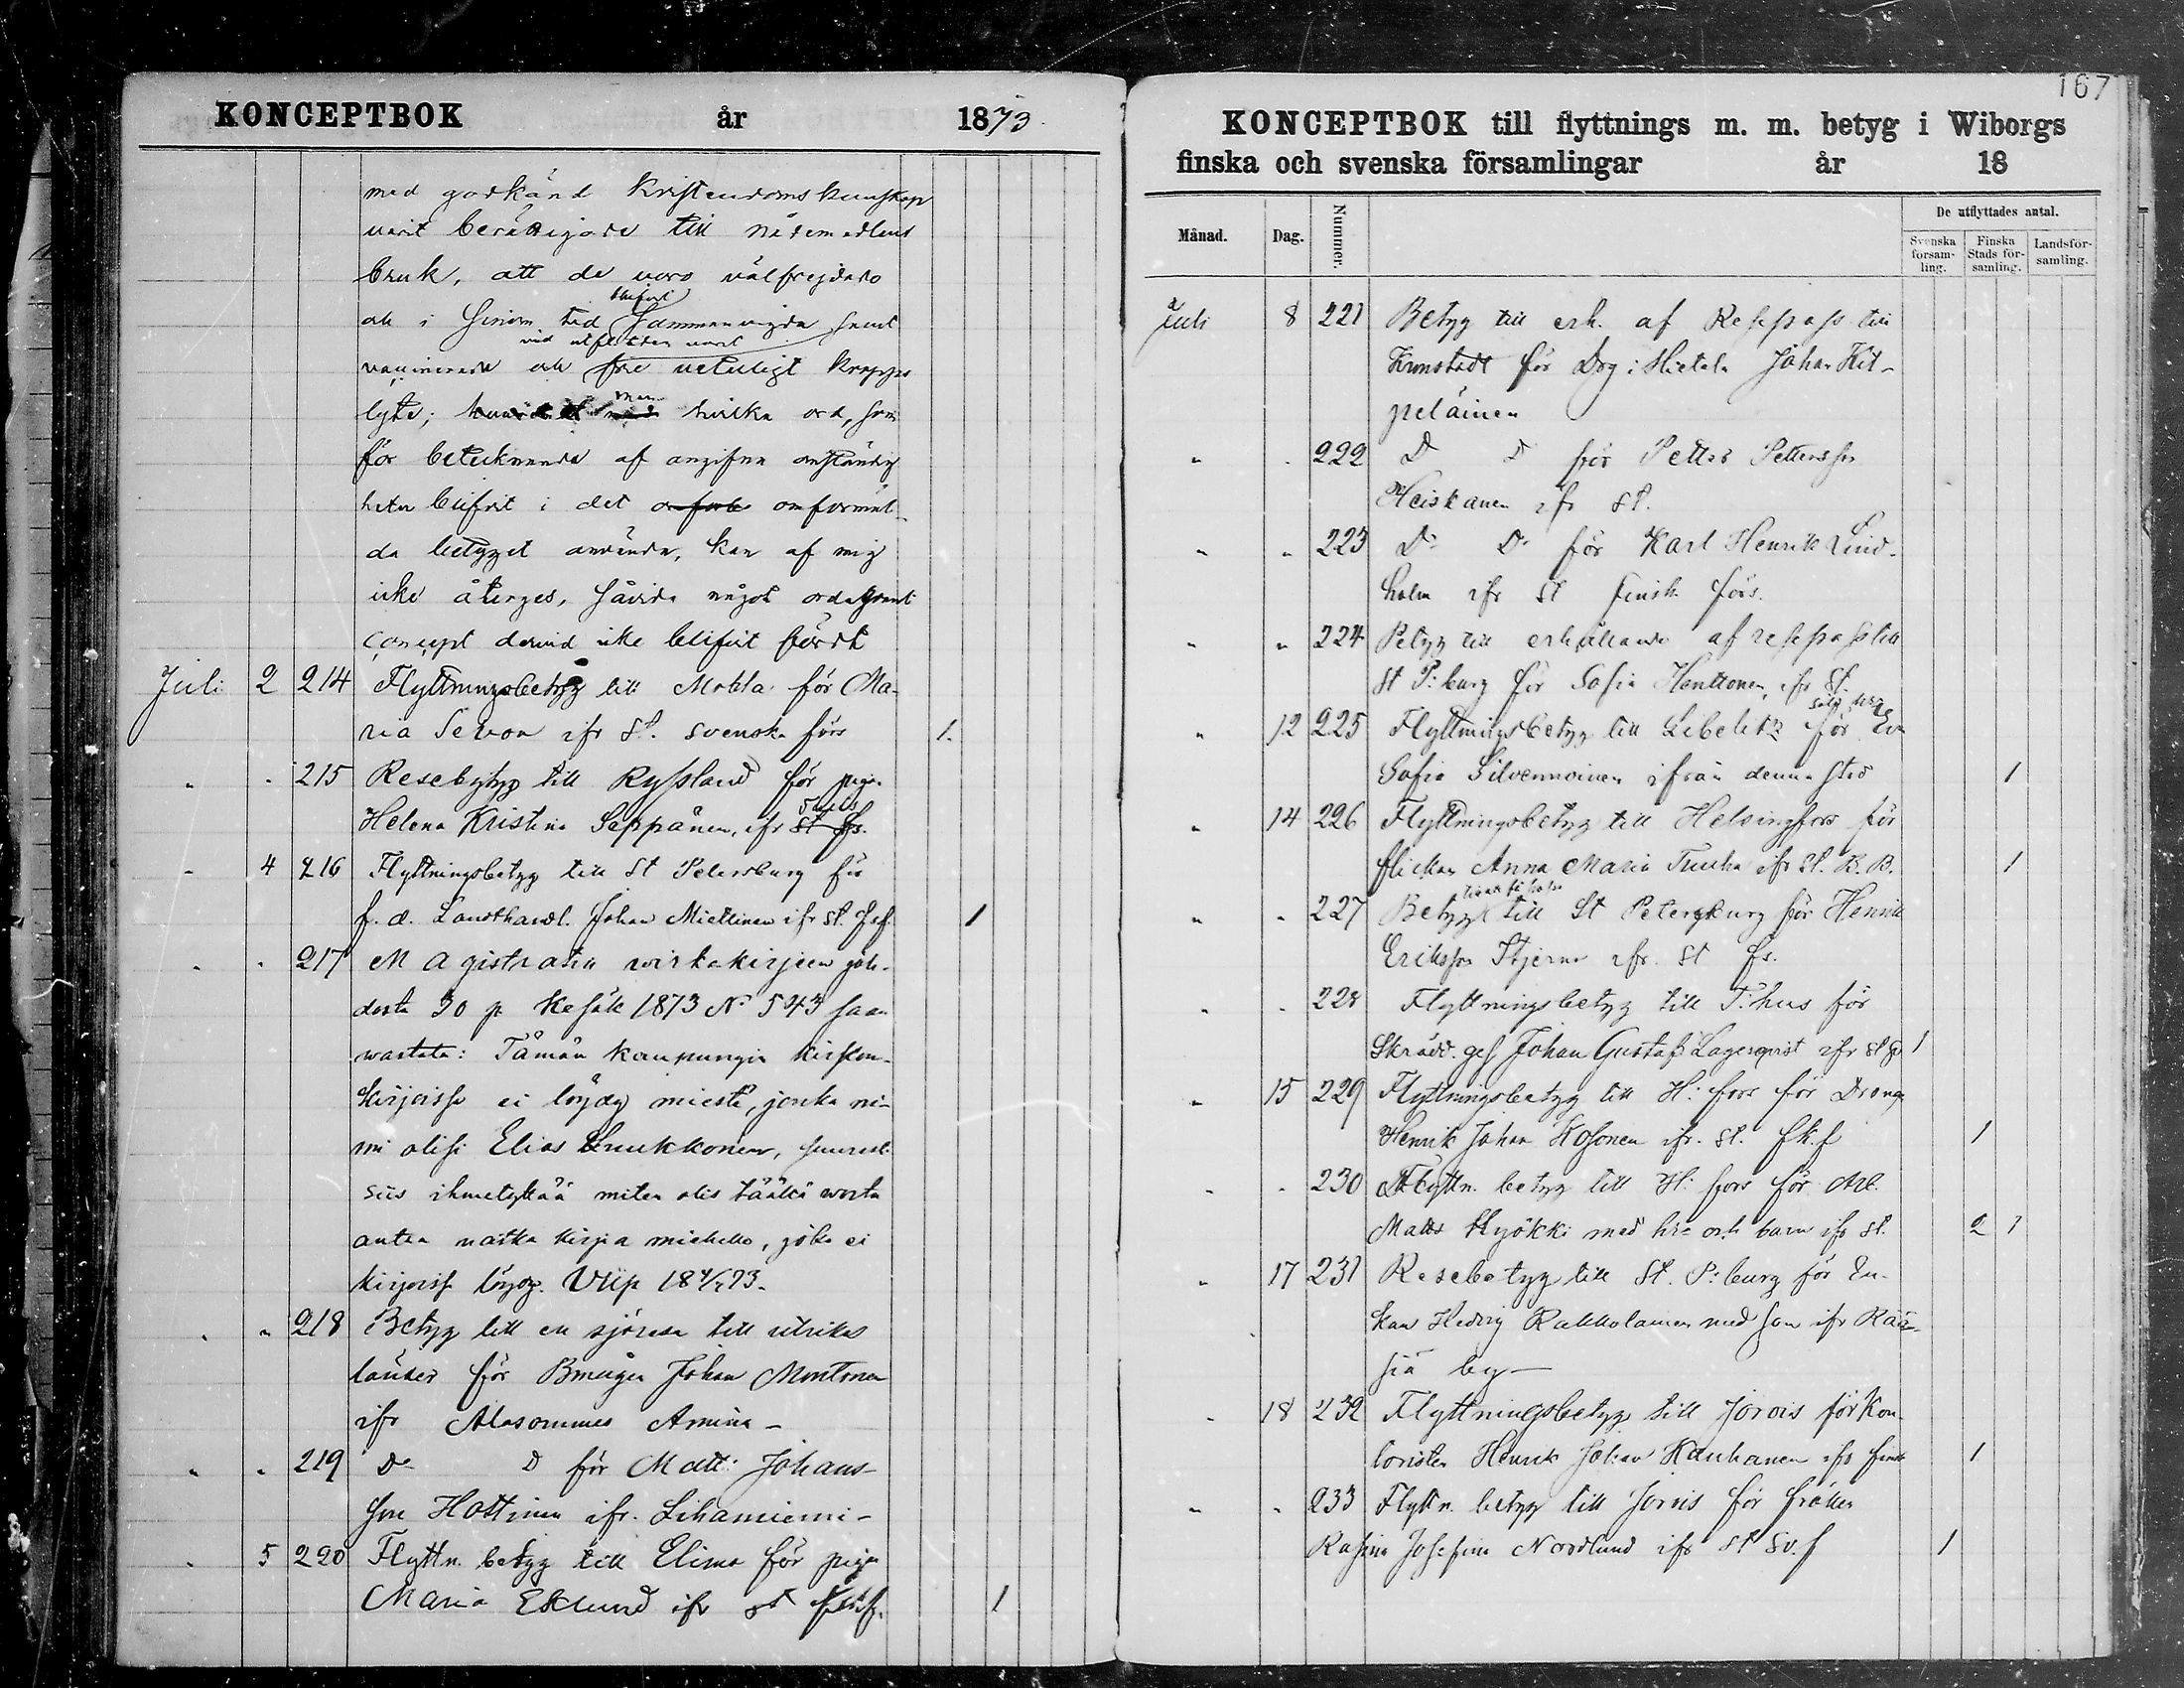 KONCEPTBOK år 1873.
med godkänd Kristendoms kunskap
varit berättigade till nådemedlens
bruk, att de voro välfrejdade
och i sinom tid blifvit sammanvigda samt
vid utflyttningen varit
vaccinerade och fria veterligt kropps
lyte; men hvilka ord, som
för betecknande af angifna omständig
heter blifvit i det omförmäl-
da betyget använda, kan af mig
icke återges, såvida något ordagrant
concept dervid icke blifvit fördt
Juli 2 214 Flyttningsbetyg till Mohla för Ma-
ria Sevon ifr St. svenska förs 1.
" " 215 Resebetyg till Ryssland för pigan
Helena Kristina Seppänen, ifr St fs.
" 4 216 Flyttningsbetyg till St Petersburg för
f. d. Landthandl. Johan Miettinen ifr St. fsf. 1
" " 217 Magistratin wirkakirjeen joh-
dosta 30 p. Kesäk 1873 No 543 saan
wastata: Tämän kaupungin kirkon-
kirjoissa ei löydy miestä, jonka ni-
mi olisi Elias Luukkonen, suurest
siis ihmetyttää miten olis täältä woitu
antaa matka kirja miehelle, joka ei
kirjoissa löydy. Viip 18 4/7 73.
" " 218 Betyg till en sjöresa till utrikes
länder för Bmågen Johan Montonen
ifr Alasommee Amina –
" " 219 Do Do för Matts Johans-
son Hottinen ifr. Lihaniemi –
" 5 220 Flyttn. betyg till Elimä för pigan
Maria Eklund ifr St fskf. 1
167
KONCEPTBOK till flyttnings m. m. betyg i Wiborgs
finska och svenska församlingar år 18
Månad. Dag. Nummer. De utflyttades antal.
Svenska försam-ling. Finska Stads för-samling. Landsför-samling.
Juli 8 221 Betyg till erh. af Respass till
Kronstadt för Drg i Hietala Johan Kit-
peläinen
" " 222 Do Do för Petter Pettersson
Heiskanen ifr St.
" " 223 Do Do för Karl Henrik Lind-
holm ifr St finsk förs.
" " 224 Betyg till erhållande af respass till
St P:burg för Sofia Henttonen, ifr St.
" 12 225 Flyttningsbetyg till Libelits för Eva
Sofia Silvennoinen ifrån denna stad 1
" 14 226 Flyttningsbetyg till Helsingfors för
flickan Anna Maria Tuuha ifr St. B. B. 1
" " 227 Betyg till St Petersburg för Henrik
Eriksson Stjerna ifr. St fs.
" " 228 Flyttningsbetyg till T:hus för
Skrädd. ges Johan Gustaf Lagerqvist ifr St sv 1
" 15 229 Flyttningsbetyg till H:fors för Drängen
Henrik Johan Kosonen ifr. St. fkf 1
" " 230 Flyttn. betyg till H:fors för Arb.
Matts Kyökki med hu och barn ifr St. 2 1
" 17 231 Resebetyg till St. P:burg för En-
kan Hedvig Rakkolainen med son ifr Kää-
siä by –
" 18 232 Flyttningsbetyg till Jorois för Kon-
toristen Henrik Johan Kauhanen ifr finsk 1
" " 233 Flyttn. betyg till Jorois för fröken
Rosina Josefina Nordlund ifr St Sv. f 1